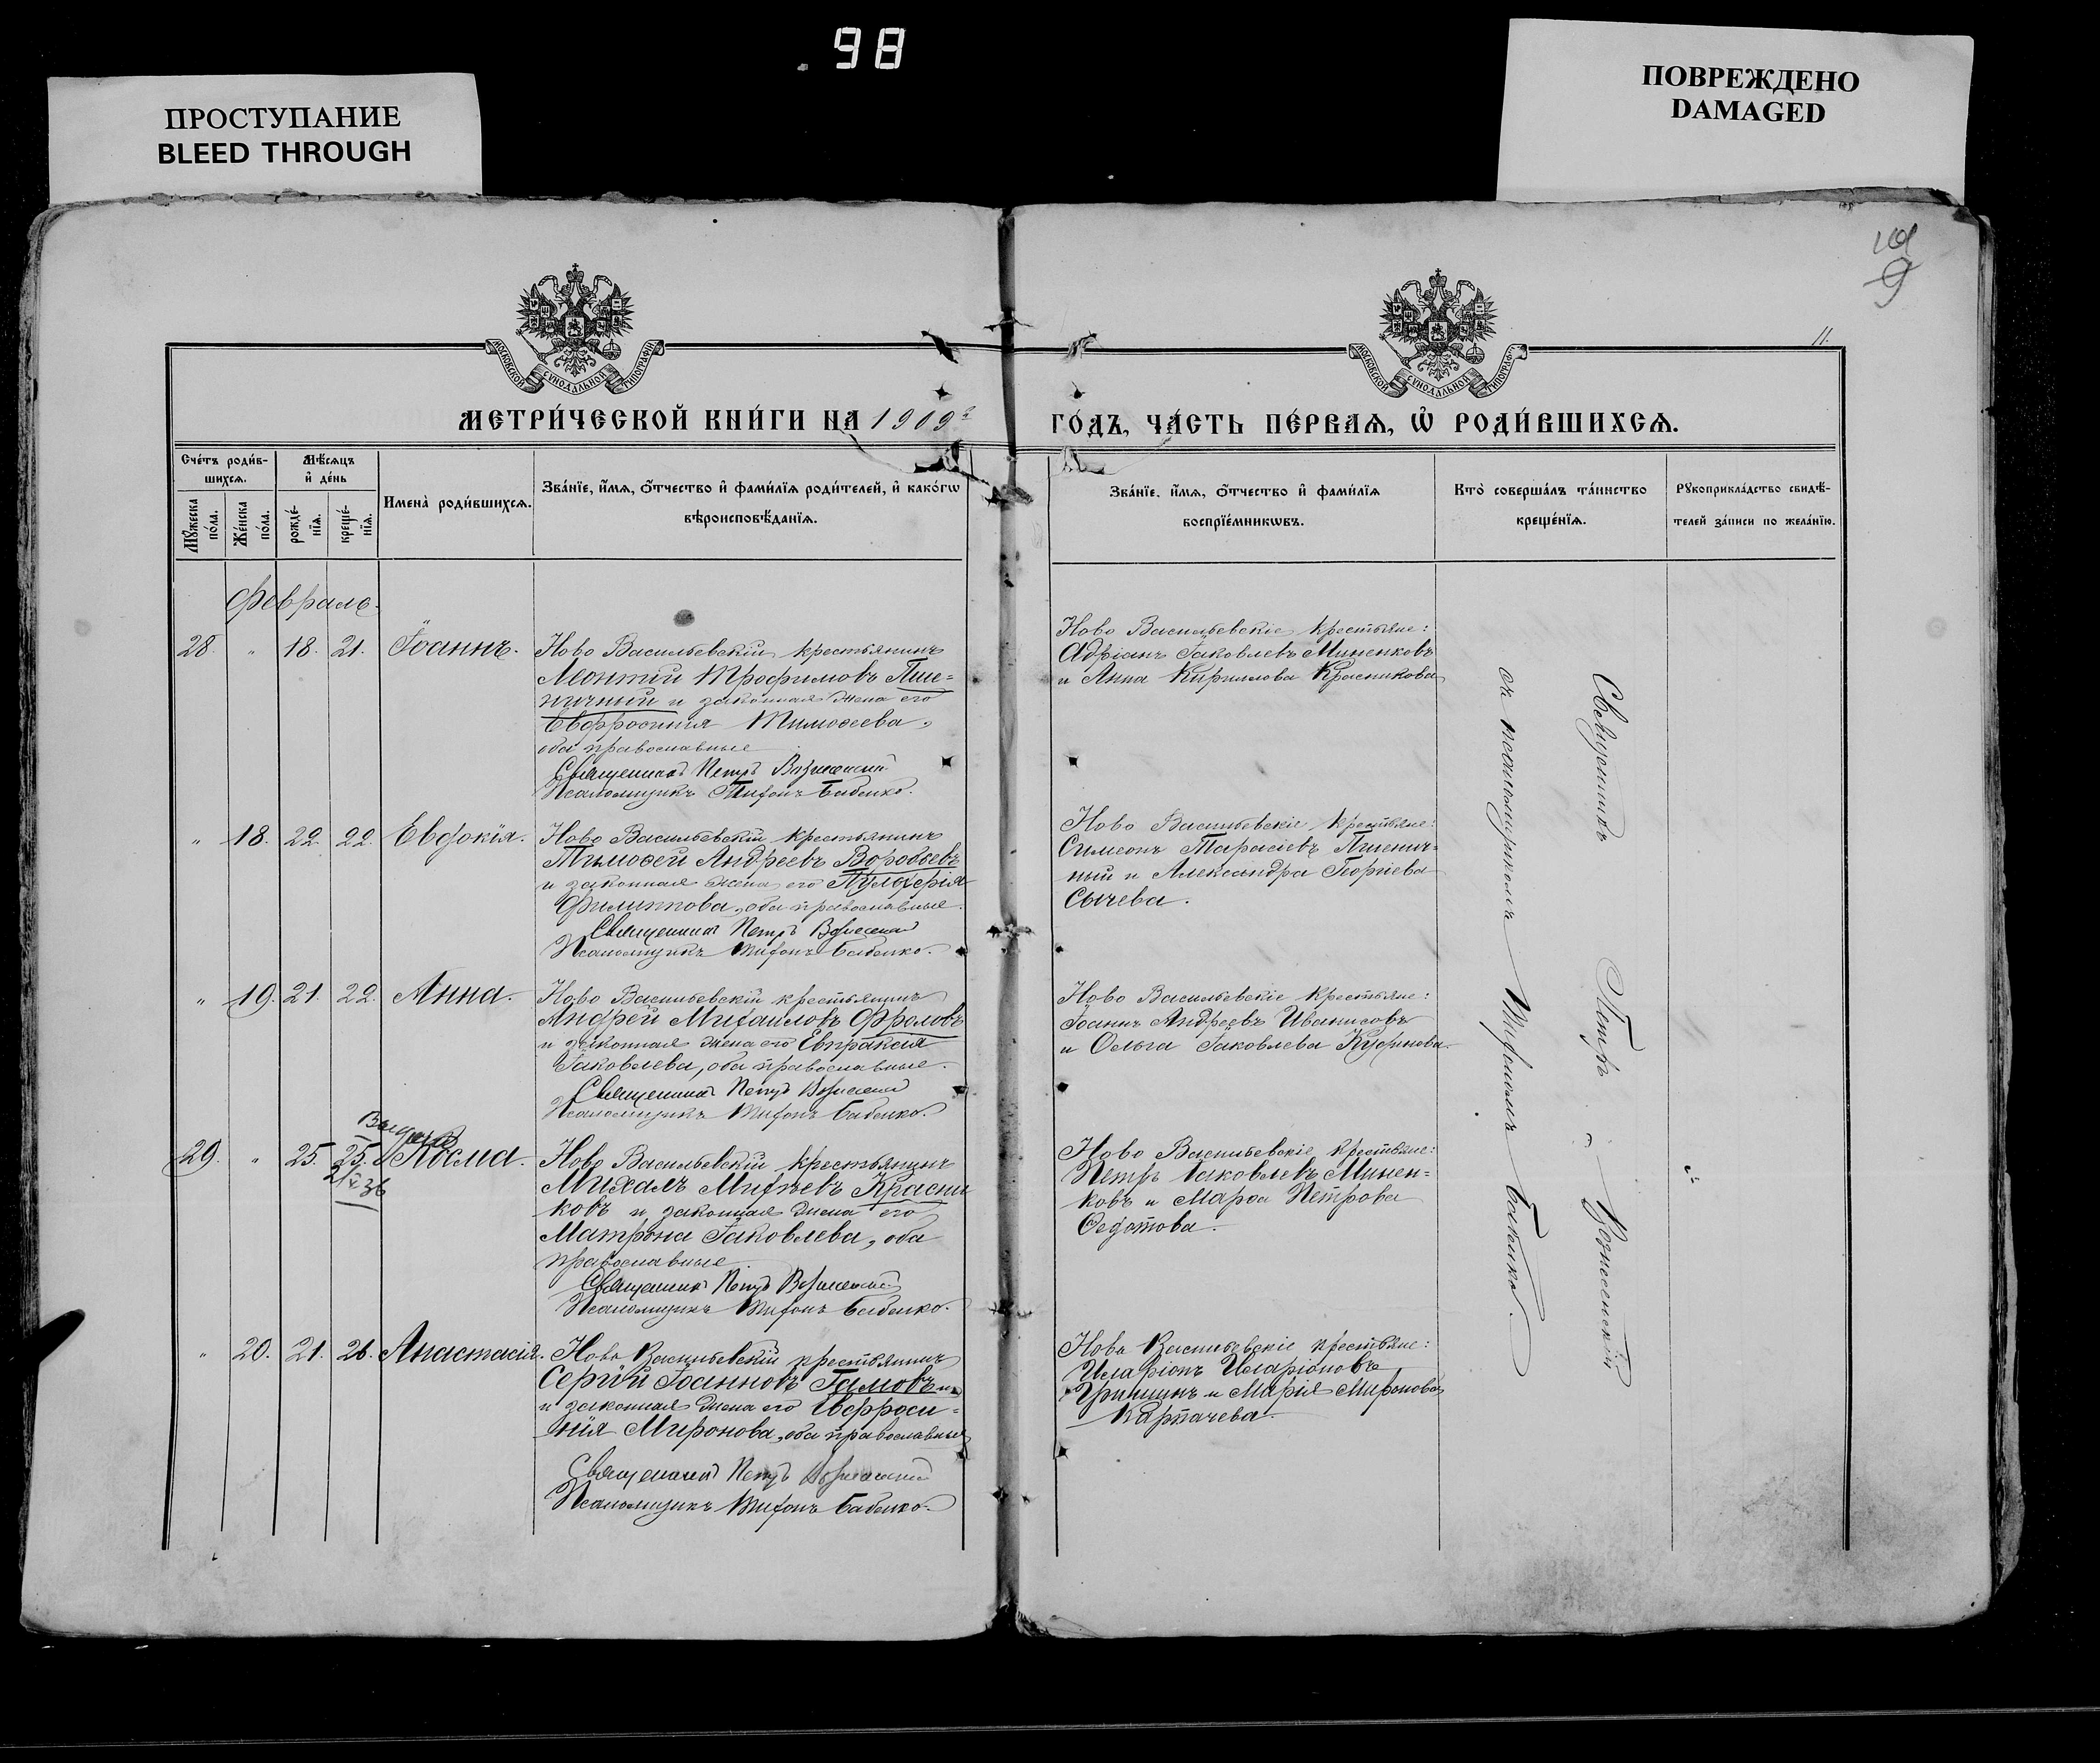 98
ПРОСТУПАНИЕ
BLEED THROUGH
ПОВРЕЖДЕНО
DAMAGED
9
11.
МОСКОВСКОЙ СѴНОДАЛЬНОЙ ТИПОГРАФІИ
МОСКОВСКОЙ СѴНОДАЛЬНОЙ ТИПОГРАФІИ
МЕТРИ́ЧЕСКОЙ КНИ́ГИ НА 1909 г
ГО́ДЪ, ЧА́СТЬ ПЕ́РВАѦ, Ѡ҆ РОДИ́ВШИХСѦ.
Сче́тъ роди́в-
шихсѧ.
Мѣ́сѧцъ
и҆ де́нь
Мꙋ́жеска
по́ла.
Же́нска
по́ла.
рожде́-
нїѧ.
креще́-
нїѧ.
Имена̀ роди́вшихсѧ.
Зва́нїе, и҆́мѧ, ѻ҆́тчество и҆ фами́лїѧ роди́телей, и҆ како́гѡ
вѣроисповѣ́данїѧ.
Зва́нїе, и҆́мѧ, ѻ҆́тчество и҆ фами́лїѧ
воспрїе́мникѡвъ.
Кто̀ соверша́лъ та́инство
креще́нїѧ.
Рꙋкоприкла́дство свидѣ́-
телей за́писи по жела́нїю.
Февраль.
28. " 18. 21. Іоаннъ.
Ново Васильевскій крестьянинъ
Леонтий Трофимовъ Пше=
ничный и законная жена его
Евфросинія Тимоѳеева,
оба православные
Священникъ Петръ Вознесенскій
Псаломщикъ Тихонъ Бабенко.
Ново Васильевскіе крестьяне:
Адріанъ Іаковлевъ Миненковъ
и Анна Кирилова Красникова
" 18. 22. 22. Евдокія.
Ново Васильевскій крестьянинъ
Тимоѳей Андреевъ Воробьевъ
и законная жена его Пулхерія
Филиппова, оба православные.
Священникъ Петръ Вознесенскій
Псаломщикъ Тихонъ Бабенко.
Ново Васильевскіе крестьяне:
Симеонъ Тарасіевъ Пшенич=
ный и Александра Георгіева
Сычева.
" 19. 21. 22. Анна.
Ново Васильевскій крестьянинъ
Андрей Михаиловъ Фроловъ
и законная жена его Евпраксія
Іаковлева, оба православные.
Священникъ Петръ Вознесенскій
Псаломщикъ Тихонъ Бабенко.
Ново Васильевскіе крестьяне:
Іоаннъ Андреевъ Иванисовъ
и Ольга Іаковлева Кудинова.
29. " 25. 25. Косма.
Ново Васильевскій крестьянинъ
Михаилъ Михѣевъ Красни
ковъ и законная жена его
Матрона Іаковлева, оба
православные.
Священникъ Петръ Вознесенскій
Псаломщикъ Тихонъ Бабенко.
Ново Васильевскіе крестьяне:
Петръ Іаковлевъ Минен=
ковъ и Марѳа Петрова
Ѳедотова.
" 20. 21. 26. Анастасія.
Ново Васильевскій крестьянинъ
Сергій Іоанновъ Гамовъ
и законная жена его Евфроси=
нія Миронова, оба православные
Священникъ Петръ Вознесенскій
Псаломщикъ Тихонъ Бабенко.
Ново Васильевскіе крестьяне:
Иларіонъ Иларіоновъ
Гришинъ и Марія Миронова
Карпачева.
Священникъ Петръ Вознесенскій
съ псаломщикомъ Тихономъ Бабенко.